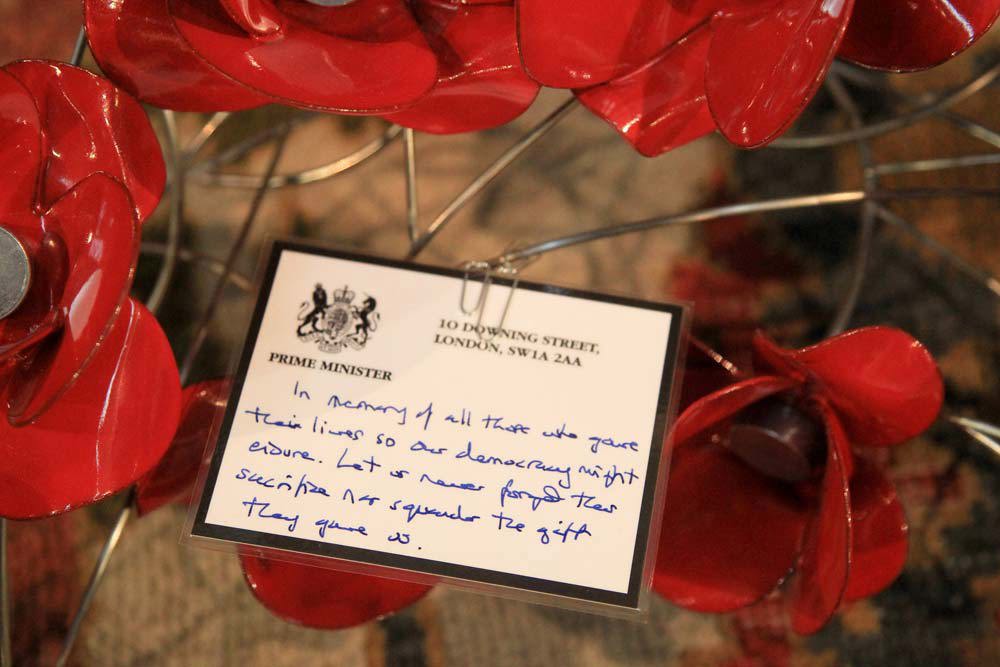 PRIME MINISTER
10 DOWNING STREET,
LONDON, SW1A 2AA
In memory of all those who gave
their lives so our democracy might
endure. Let us never forget their
sacrifice nor squander the gift
they gave us.